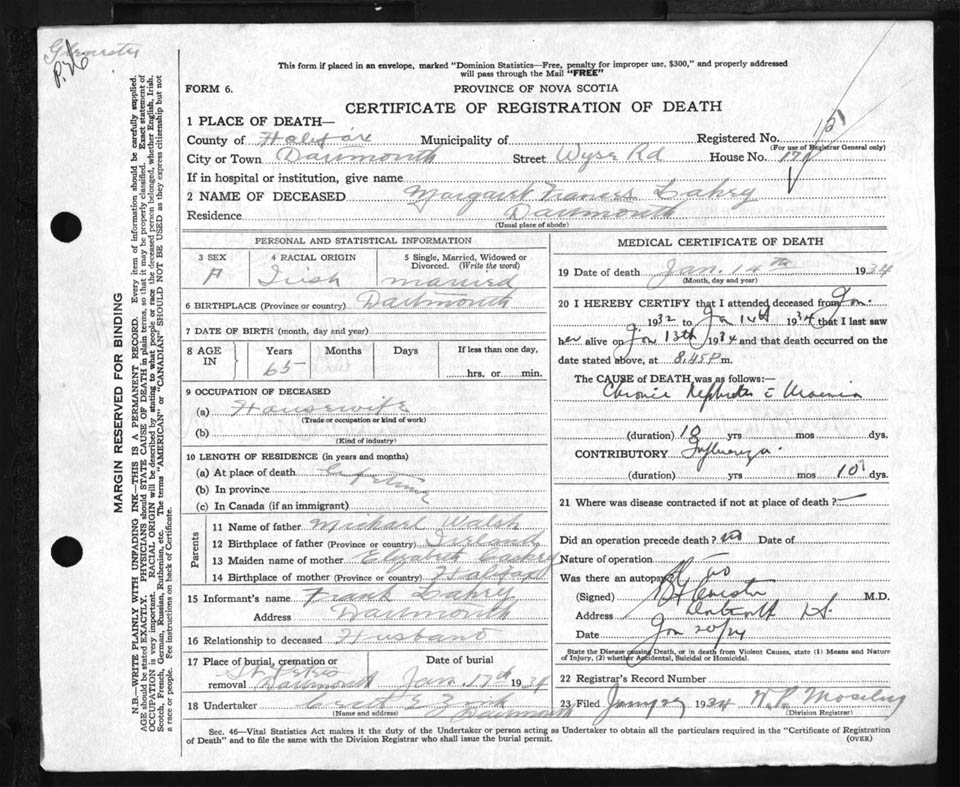 This form if placed in an envelope, marked "Dominion Statistics—Free, penalty for improper use, $300," and properly addressed
will pass through the Mail "FREE"
FORM 6. PROVINCE OF NOVA SCOTIA
CERTIFICATE OF REGISTRATION OF DEATH
1 PLACE OF DEATH—
County of Halifax Municipality of Registered No.
(For use of Registrar General only)
City or Town Dartmouth Street Wyse Rd House No. 171
If in hospital or institution, give name
2 NAME OF DECEASED Margaret Frances Lahey
Residence Dartmouth
(Usual place of abode)
PERSONAL AND STATISTICAL INFORMATION
3 SEX 4 RACIAL ORIGIN 5 Single, Married, Widowed or Divorced. (Write the word)
F Irish married
6 BIRTHPLACE (Province or country) Dartmouth
7 DATE OF BIRTH (month, day and year)
8 AGE IN Years Months Days If less than one day,
65 hrs. or min.
9 OCCUPATION OF DECEASED
(a) Housewife
(Trade or occupation or kind of work)
(b)
(Kind of industry)
10 LENGTH OF RESIDENCE (in years and months)
(a) At place of death
(b) In province
(c) In Canada (if an immigrant)
Parents
11 Name of father Michael Walsh
12 Birthplace of father (Province or country) Ireland
13 Maiden name of mother Elizabeth
14 Birthplace of mother (Province or country) Halifax
15 Informant's name Frank Lahey
Address Dartmouth
16 Relationship to deceased Husband
17 Place of burial, cremation or removal St Peters Dartmouth
Date of burial Jan. 17th 1934
18 Undertaker Dartmouth
(Name and address)
MEDICAL CERTIFICATE OF DEATH
19 Date of death Jan. 14th 1934
(Month, day and year)
20 I HEREBY CERTIFY that I attended deceased from Jan.
1932 to Jan 14th 1934 that I last saw
her alive on Jan 13th 1934 and that death occurred on the
date stated above, at 8.45 P m.
The CAUSE of DEATH was as follows:—
Chronic Nephritis c̄ Uraemia
(duration) 10 yrs mos dys.
CONTRIBUTORY Influenza
(duration) yrs mos 10 dys.
21 Where was disease contracted if not at place of death?
Did an operation precede death? no Date of
Nature of operation
Was there an autopsy? no
(Signed) M.D.
Address Dartmouth N.S.
Date Jan 20/34
State the Disease causing Death, or in death from Violent Causes, state (1) Means and Nature
of Injury, (2) whether Accidental, Suicidal or Homicidal.
22 Registrar's Record Number
23 Filed 1934
(Division Registrar)
Sec. 46—Vital Statistics Act makes it the duty of the Undertaker or person acting as Undertaker to obtain all the particulars required in the "Certificate of Registration
of Death" and to file the same with the Division Registrar who shall issue the burial permit. (OVER)
MARGIN RESERVED FOR BINDING
N.B.—WRITE PLAINLY WITH UNFADING INK—THIS IS A PERMANENT RECORD. Every item of information should be carefully supplied.
AGE should be stated EXACTLY. PHYSICIANS should STATE CAUSE OF DEATH in plain terms, so that it may be properly classified. Exact statement of
OCCUPATION is very important. RACIAL ORIGIN will be described by stating to what people or race the deceased person belonged, whether English, Irish,
Scotch, French, German, Russian, Ruthenian, etc. The terms "AMERICAN" or "CANADIAN" SHOULD NOT BE USED as they express citizenship but not
a race or people. Fee instructions on back of Certificate.